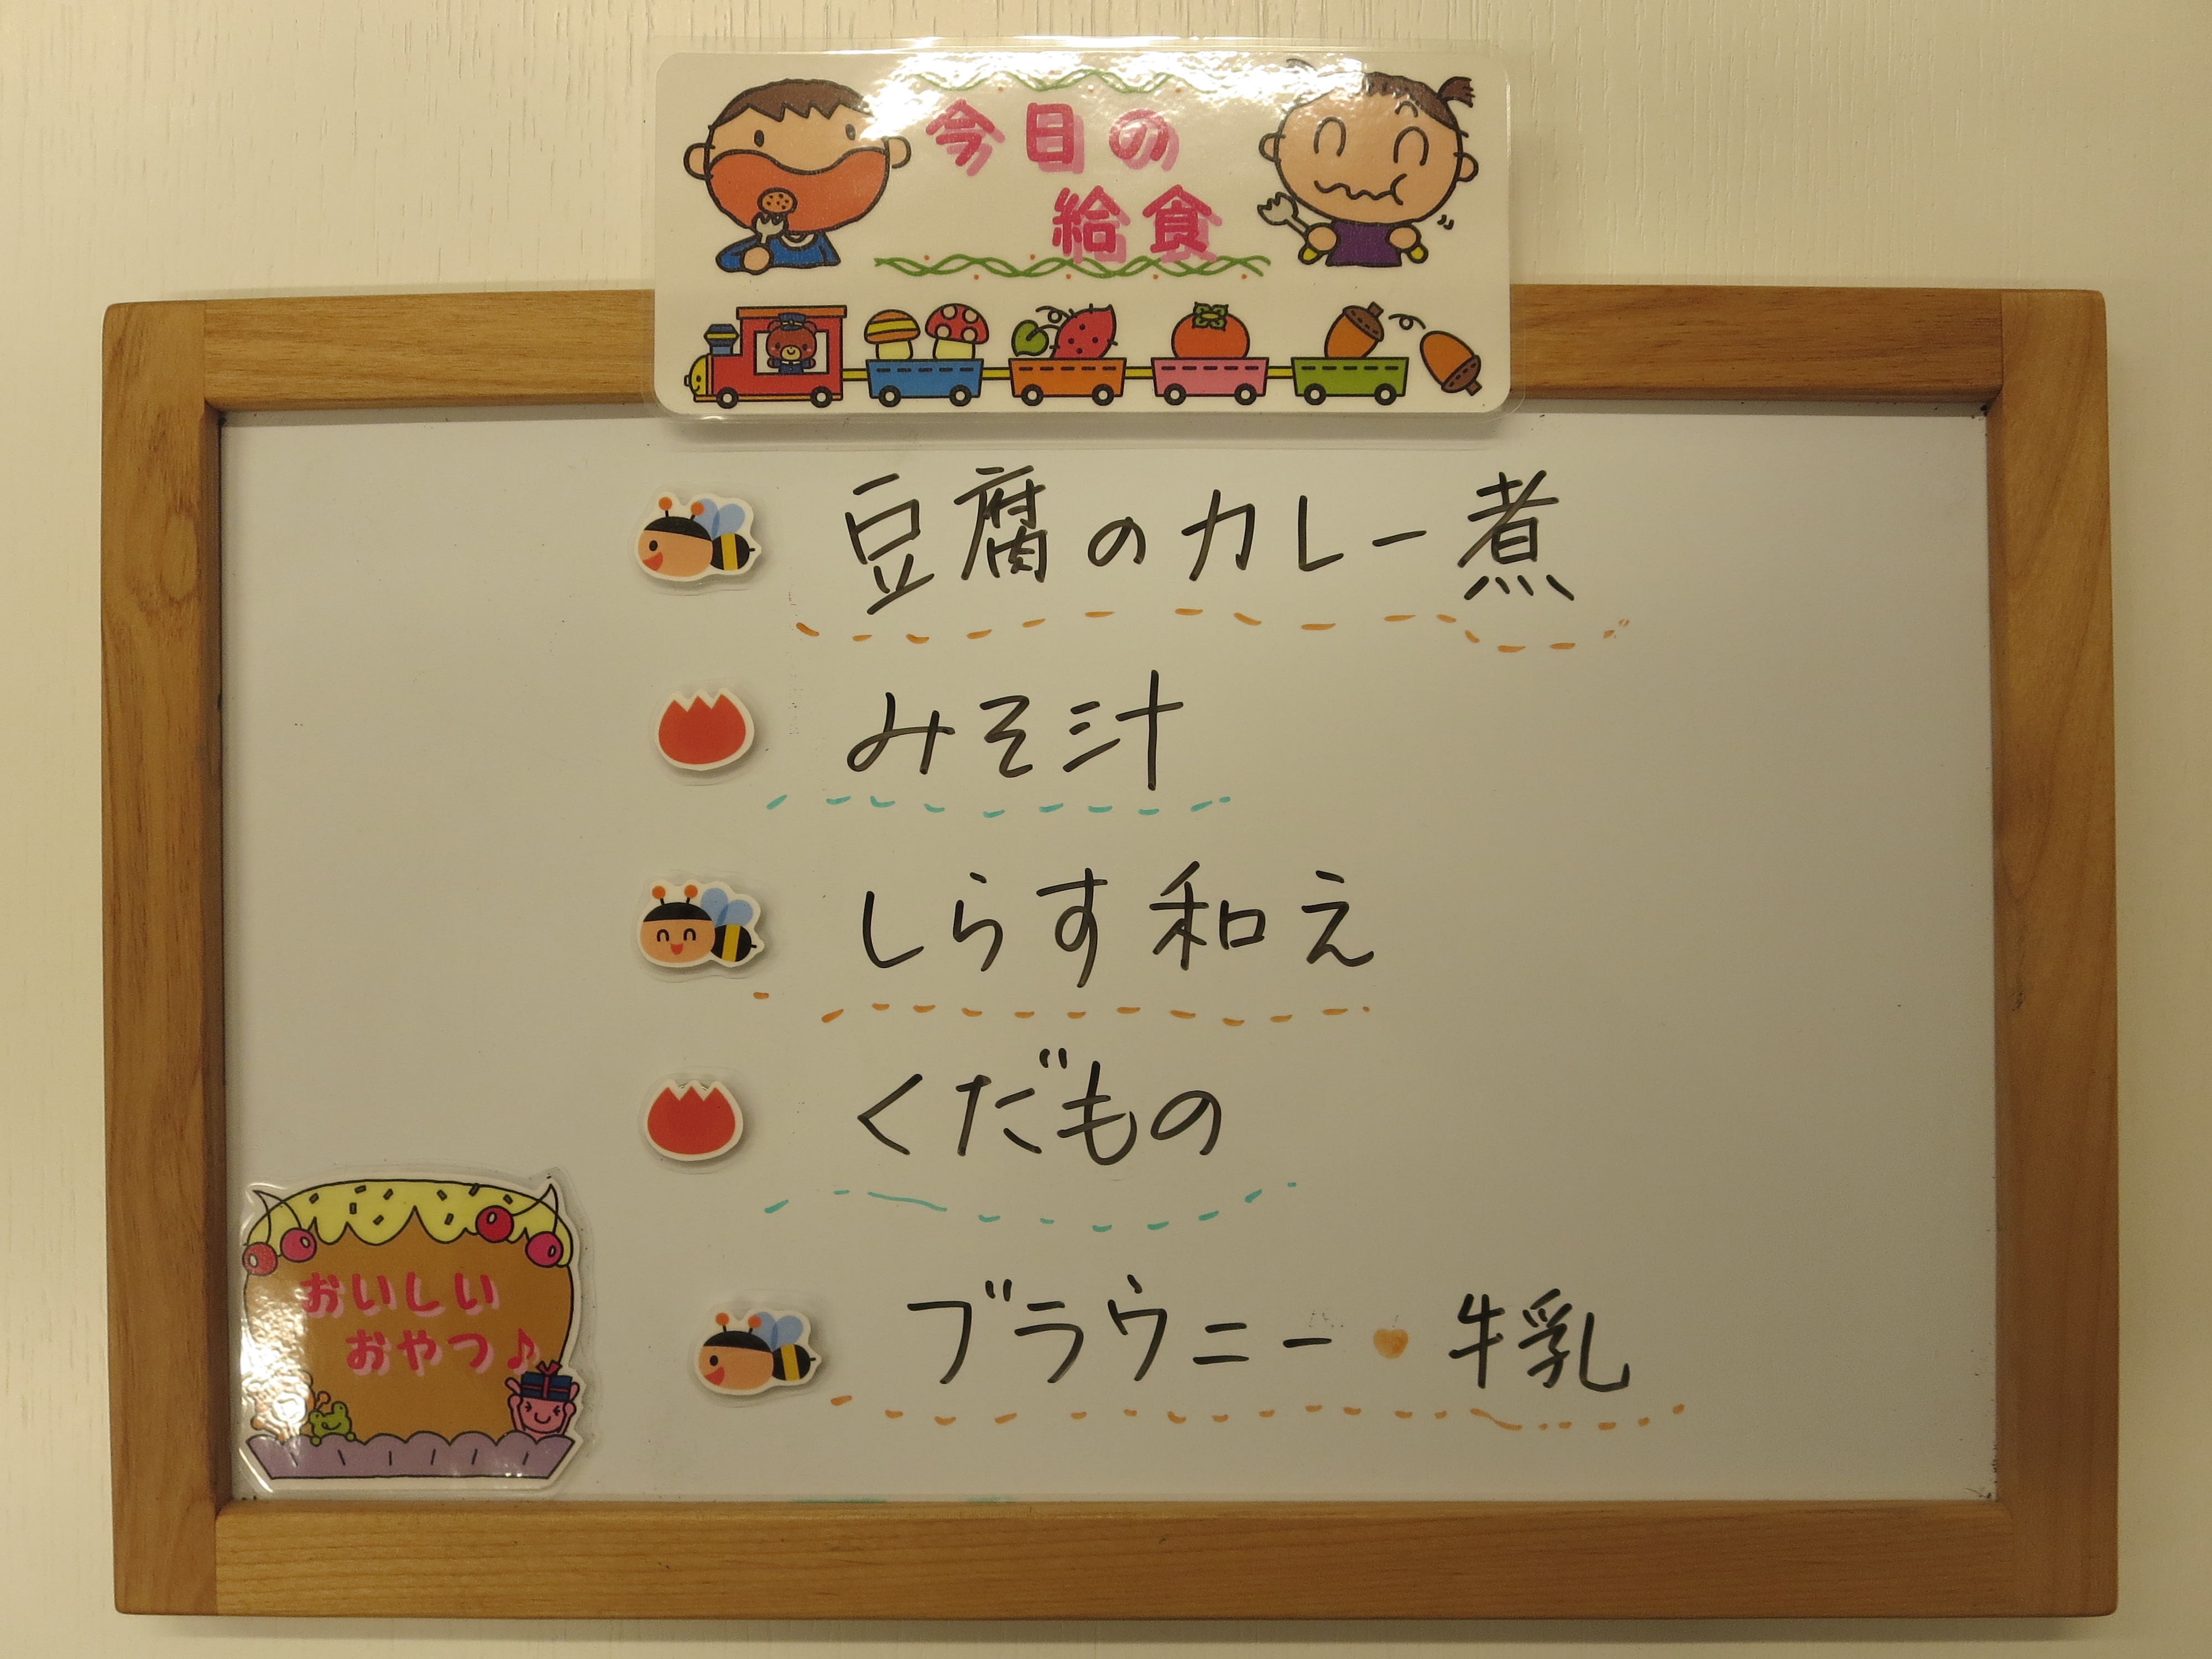 今日の
給食
豆腐のカレー煮
みそ汁
しらす和え
くだもの
おいしい
おやつ♪
ブラウニー・牛乳